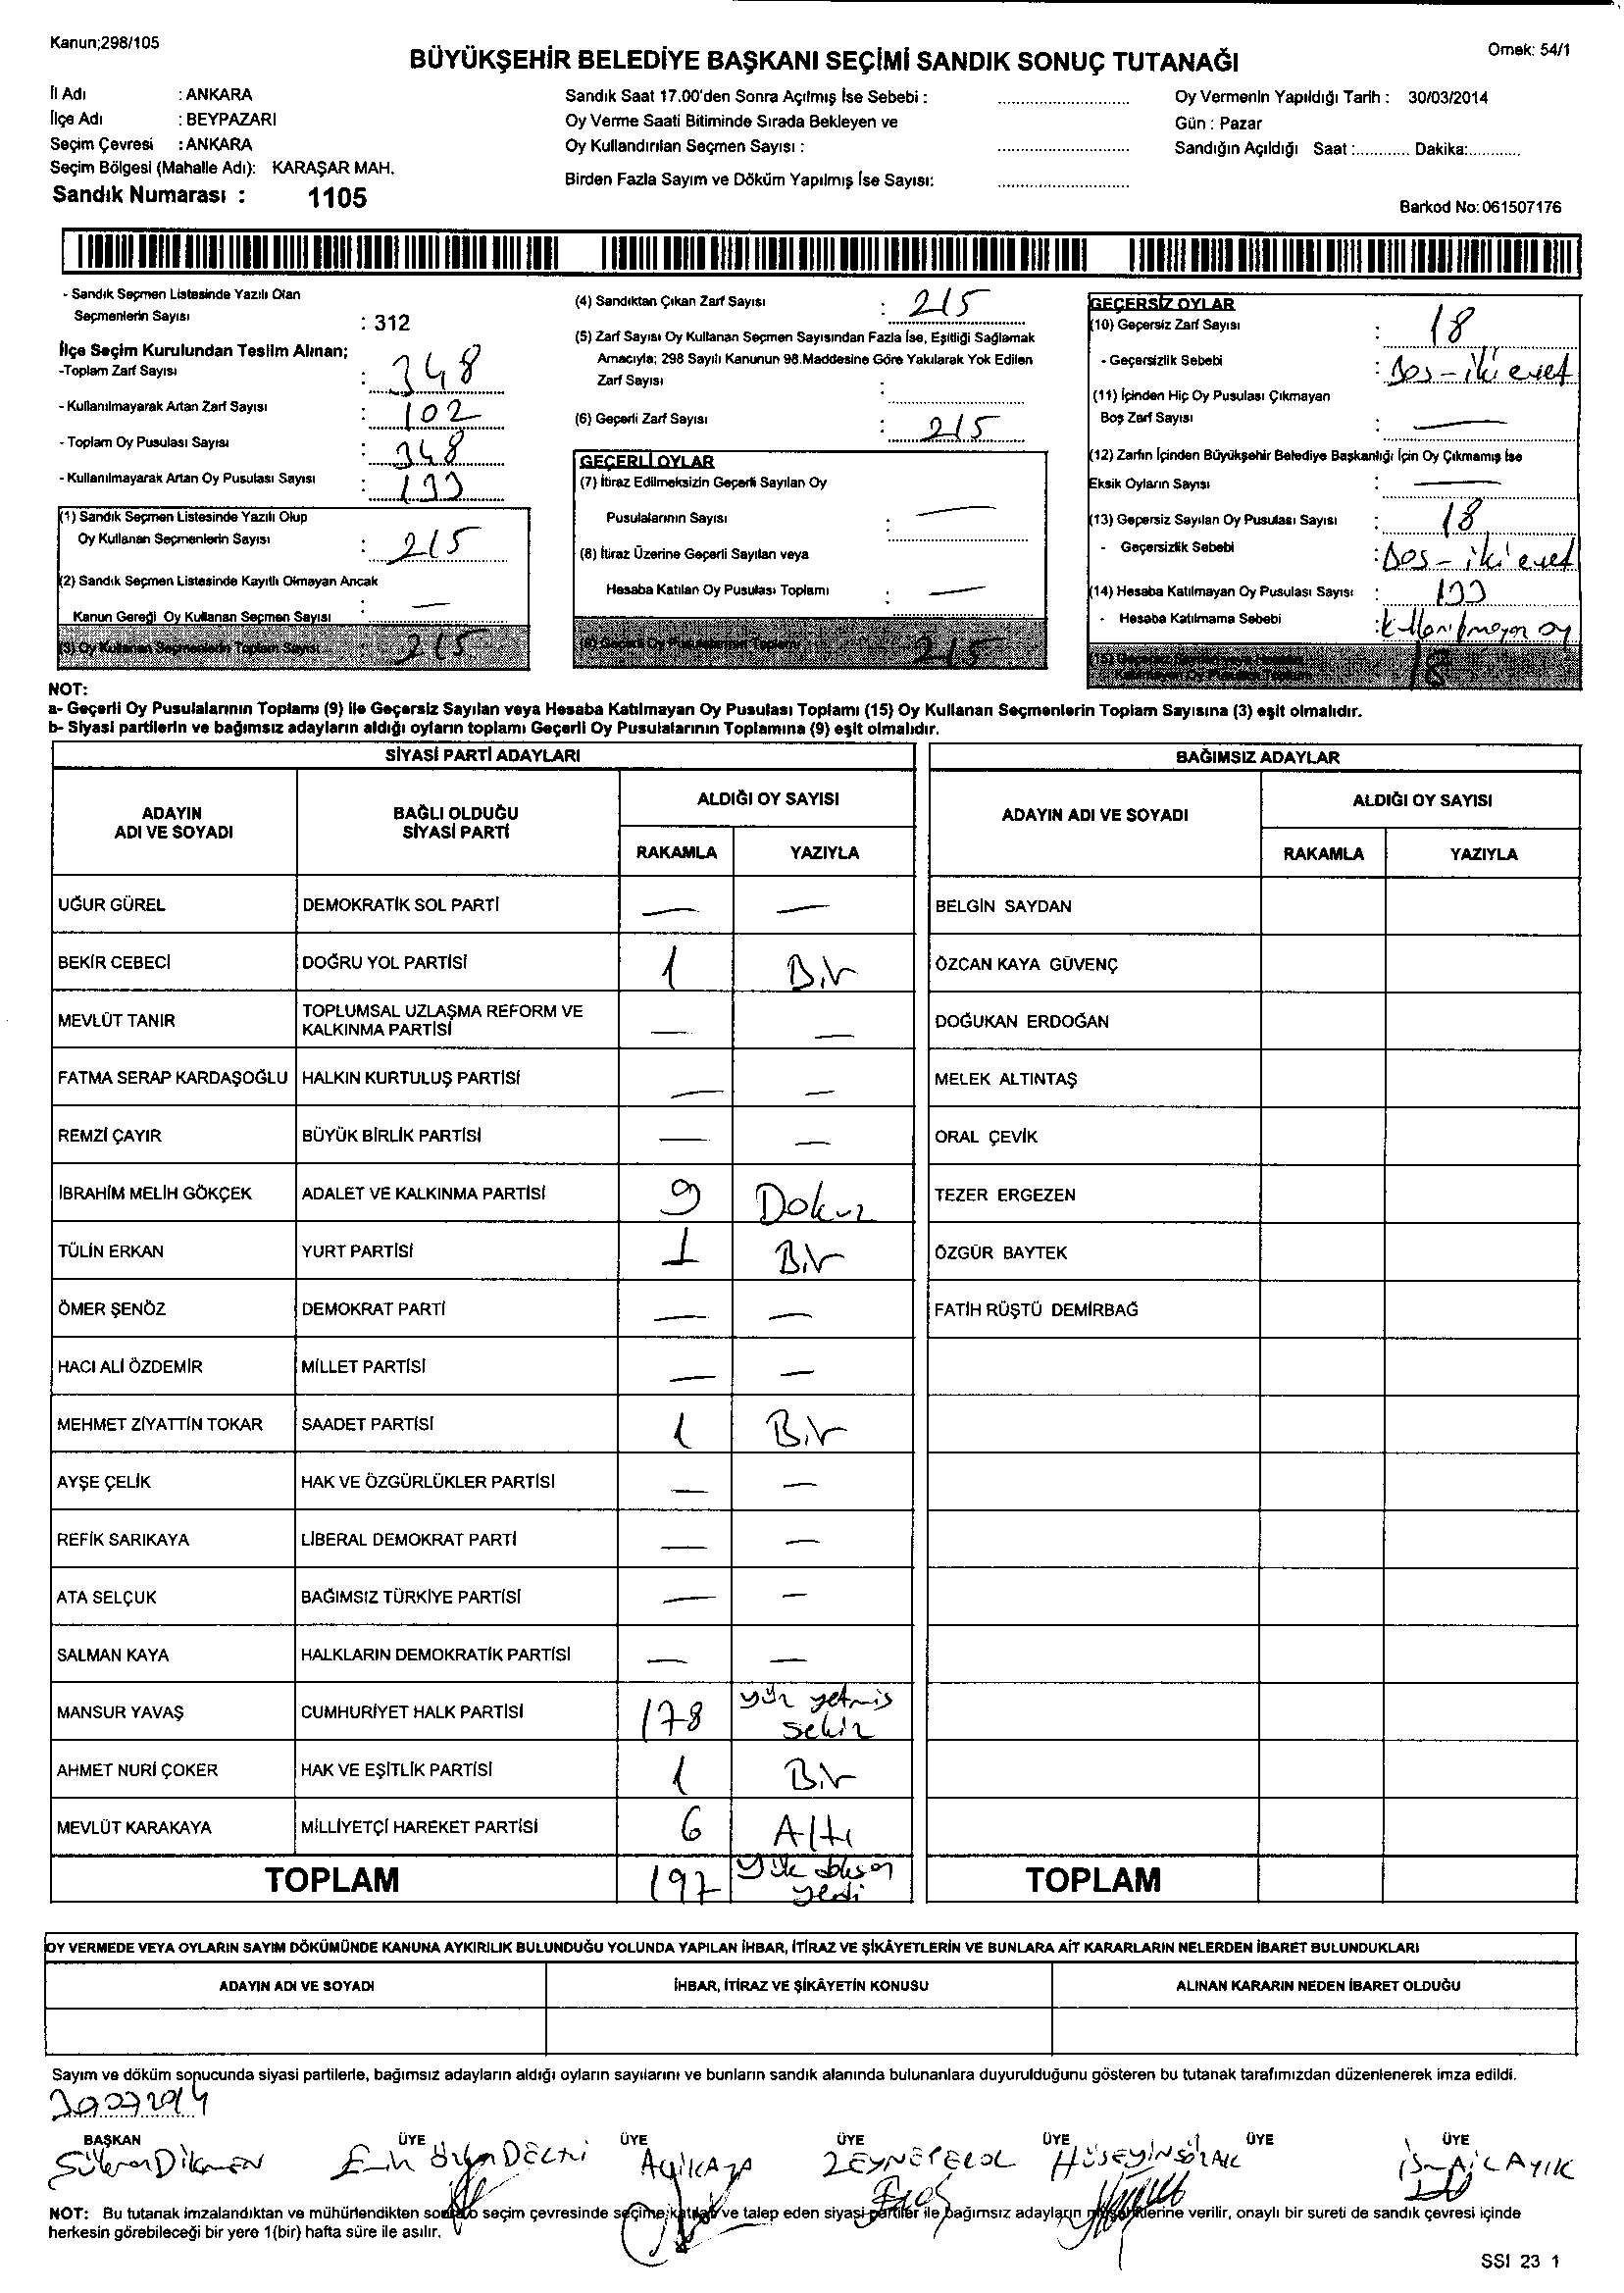 Kanun;298/105
Örnek: 54/1
BÜYÜKŞEHİR BELEDİYE BAŞKANI SEÇİMİ SANDIK SONUÇ TUTANAĞI
İl Adı : ANKARA
İlçe Adı : BEYPAZARI
Seçim Çevresi : ANKARA
Seçim Bölgesi (Mahalle Adı): KARAŞAR MAH.
Sandık Numarası : 1105
Sandık Saat 17.00'den Sonra Açılmış İse Sebebi :
Oy Verme Saati Bitiminde Sırada Bekleyen ve
Oy Kullandırılan Seçmen Sayısı :
Birden Fazla Sayım ve Döküm Yapılmış İse Sayısı:
Oy Vermenin Yapıldığı Tarih : 30/03/2014
Gün : Pazar
Sandığın Açıldığı Saat :............ Dakika:............
Barkod No: 061507176
- Sandık Seçmen Listesinde Yazılı Olan
Seçmenlerin Sayısı : 312
İlçe Seçim Kurulundan Teslim Alınan;
-Toplam Zarf Sayısı : 348
- Kullanılmayarak Artan Zarf Sayısı : 102
- Toplam Oy Pusulası Sayısı : 348
- Kullanılmayarak Artan Oy Pusulası Sayısı : 133
(1) Sandık Seçmen Listesinde Yazılı Olup
Oy Kullanan Seçmenlerin Sayısı : 215
(2) Sandık Seçmen Listesinde Kayıtlı Olmayan Ancak
Kanun Gereği Oy Kullanan Seçmen Sayısı : —
(3) Oy Kullanan Seçmenlerin Toplam Sayısı : 215
(4) Sandıktan Çıkan Zarf Sayısı : 215
(5) Zarf Sayısı Oy Kullanan Seçmen Sayısından Fazla İse, Eşitliği Sağlamak
Amacıyla; 298 Sayılı Kanunun 98.Maddesine Göre Yakılarak Yok Edilen
Zarf Sayısı :
(6) Geçerli Zarf Sayısı : 215
GEÇERLİ OYLAR
(7) İtiraz Edilmeksizin Geçerli Sayılan Oy
Pusulalarının Sayısı : —
(8) İtiraz Üzerine Geçerli Sayılan veya
Hesaba Katılan Oy Pusulası Toplamı : —
(9) Geçerli Oy Pusulalarının Toplamı 215
GEÇERSİZ OYLAR
(10) Geçersiz Zarf Sayısı : 18
- Geçersizlik Sebebi : Bos - iki evet
(11) İçinden Hiç Oy Pusulası Çıkmayan
Boş Zarf Sayısı : —
(12) Zarfın İçinden Büyükşehir Belediye Başkanlığı İçin Oy Çıkmamış İse
Eksik Oyların Sayısı : —
(13) Geçersiz Sayılan Oy Pusulası Sayısı : 18
- Geçersizlik Sebebi : Bos - iki evet
(14) Hesaba Katılmayan Oy Pusulası Sayısı : 133
- Hesaba Katılmama Sebebi : kullanılmayan oy
18
NOT:
a- Geçerli Oy Pusulalarının Toplamı (9) ile Geçersiz Sayılan veya Hesaba Katılmayan Oy Pusulası Toplamı (15) Oy Kullanan Seçmenlerin Toplam Sayısına (3) eşit olmalıdır.
b- Siyasi partilerin ve bağımsız adayların aldığı oyların toplamı Geçerli Oy Pusulalarının Toplamına (9) eşit olmalıdır.
SİYASİ PARTİ ADAYLARI
ADAYIN ADI VE SOYADI BAĞLI OLDUĞU SİYASİ PARTİ ALDIĞI OY SAYISI
RAKAMLA YAZIYLA
UĞUR GÜREL DEMOKRATİK SOL PARTİ — —
BEKİR CEBECİ DOĞRU YOL PARTİSİ 1 Bir
MEVLÜT TANIR TOPLUMSAL UZLAŞMA REFORM VE KALKINMA PARTİSİ — —
FATMA SERAP KARDAŞOĞLU HALKIN KURTULUŞ PARTİSİ — —
REMZİ ÇAYIR BÜYÜK BİRLİK PARTİSİ — —
İBRAHİM MELİH GÖKÇEK ADALET VE KALKINMA PARTİSİ 9 Dokuz
TÜLİN ERKAN YURT PARTİSİ 1 Bir
ÖMER ŞENÖZ DEMOKRAT PARTİ — —
HACI ALİ ÖZDEMİR MİLLET PARTİSİ — —
MEHMET ZİYATTİN TOKAR SAADET PARTİSİ 1 Bir
AYŞE ÇELİK HAK VE ÖZGÜRLÜKLER PARTİSİ — —
REFİK SARIKAYA LİBERAL DEMOKRAT PARTİ — —
ATA SELÇUK BAĞIMSIZ TÜRKİYE PARTİSİ — —
SALMAN KAYA HALKLARIN DEMOKRATİK PARTİSİ — —
MANSUR YAVAŞ CUMHURİYET HALK PARTİSİ 178 yüz yetmis sekiz
AHMET NURİ ÇOKER HAK VE EŞİTLİK PARTİSİ 1 Bir
MEVLÜT KARAKAYA MİLLİYETÇİ HAREKET PARTİSİ 6 Altı
TOPLAM 197 yüz doksan yedi
BAĞIMSIZ ADAYLAR
ADAYIN ADI VE SOYADI ALDIĞI OY SAYISI
RAKAMLA YAZIYLA
BELGİN SAYDAN
ÖZCAN KAYA GÜVENÇ
DOĞUKAN ERDOĞAN
MELEK ALTINTAŞ
ORAL ÇEVİK
TEZER ERGEZEN
ÖZGÜR BAYTEK
FATİH RÜŞTÜ DEMİRBAĞ
TOPLAM
OY VERMEDE VEYA OYLARIN SAYIM DÖKÜMÜNDE KANUNA AYKIRILIK BULUNDUĞU YOLUNDA YAPILAN İHBAR, İTİRAZ VE ŞİKÂYETLERİN VE BUNLARA AİT KARARLARIN NELERDEN İBARET BULUNDUKLARI
ADAYIN ADI VE SOYADI İHBAR, İTİRAZ VE ŞİKÂYETİN KONUSU ALINAN KARARIN NEDEN İBARET OLDUĞU
Sayım ve döküm sonucunda siyasi partilerle, bağımsız adayların aldığı oyların sayılarını ve bunların sandık alanında bulunanlara duyurulduğunu gösteren bu tutanak tarafımızdan düzenlenerek imza edildi.
30032014
BAŞKAN ÜYE ÜYE ÜYE ÜYE ÜYE ÜYE
DİKMEN ZEYNEP EROL HÜSEYİN İSMAİL AYIK
NOT: Bu tutanak imzalandıktan ve mühürlendikten sonra o seçim çevresinde seçime katılan ve talep eden siyasi partiler ile bağımsız adayların müşahitlerine verilir, onaylı bir sureti de sandık çevresi içinde
herkesin görebileceği bir yere 1(bir) hafta süre ile asılır.
SSI 23 1